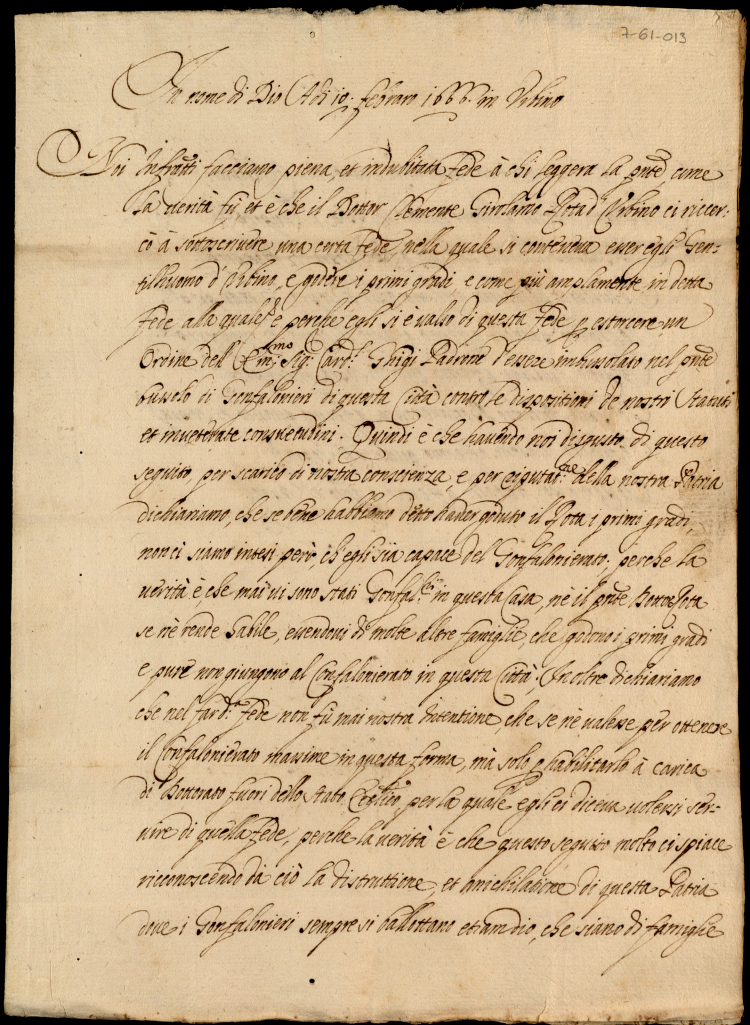 7-61-013
In nome di Dio Adi 10. febraro 1666. in Urbino
Noi Infratti facciamo piena, et indubitata fede à chi leggera la pnte, come
la verità fù et è che il Dottor Clemente Girolamo Rota d'Urbino ci ricer-
cò à sottoscrivere una certa fede, nella quale si conteneva esser egli Gen-
tilhuomo d'Urbino, e godere i primi gradi, e come più amplamente in detta
fede alla quale &c e perche egli si è valso di questa fede p estorcere un
Ordine dell' Em.mo Sig. Card.l Ghigi Padrone d'essere imbussolato nel pnte
bussolo di Gonfalonieri di questa Città contro le dispositioni de nostri Statuti
et inveterate consuetudini. Quindi è che havendo noi disgusto di questo
seguito, per scarico di nostra conscienza, e per reputat.ne della nostra Patria
dichiariamo, che se bene habbiamo detto haver goduto il Rota i primi gradi,
non ci siamo intesi però, ch'egli sia capace del Gonfalonierato; perche la
verità è che mai vi sono stati Gonfal.ri in questa Casa, nè il pnte Dottor Rota
se nè rende habile, essendovi di molte altre famiglie, che godono i primi gradi
e pure non giungono al Gonfalonierato in questa Città; Inoltre dichiariamo
che nel far d.a fede non fù mai nostra Intentione, che se nè valesse per ottenere
il Gonfalonierato massime in questa forma, mà solo p habilitarlo à carica
di Dottorato fuori dello Stato, per la quale egli ci diceva volersi ser-
vire di quella fede, perche la verità è che questo seguito molto ci spiace
riconoscendo da ciò la distruttione, et anichilatione di questa Patria
dove i Gonfalonieri sempre si ballottano etiamdio, che siano di famiglie